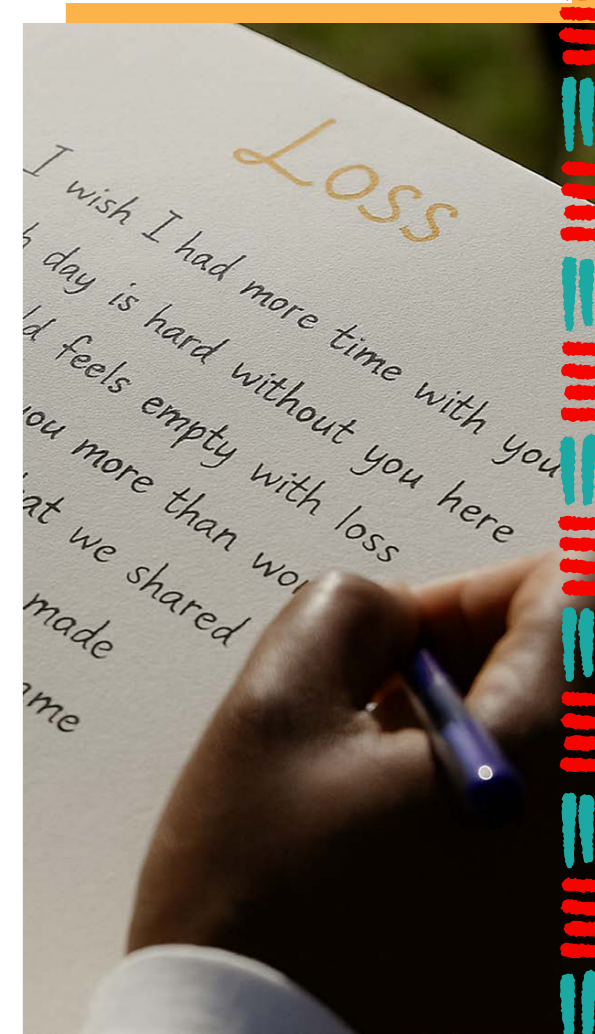 Loss
I wish I had more time with you
day is hard without you here
feels empty with loss
you more than
we shared
made